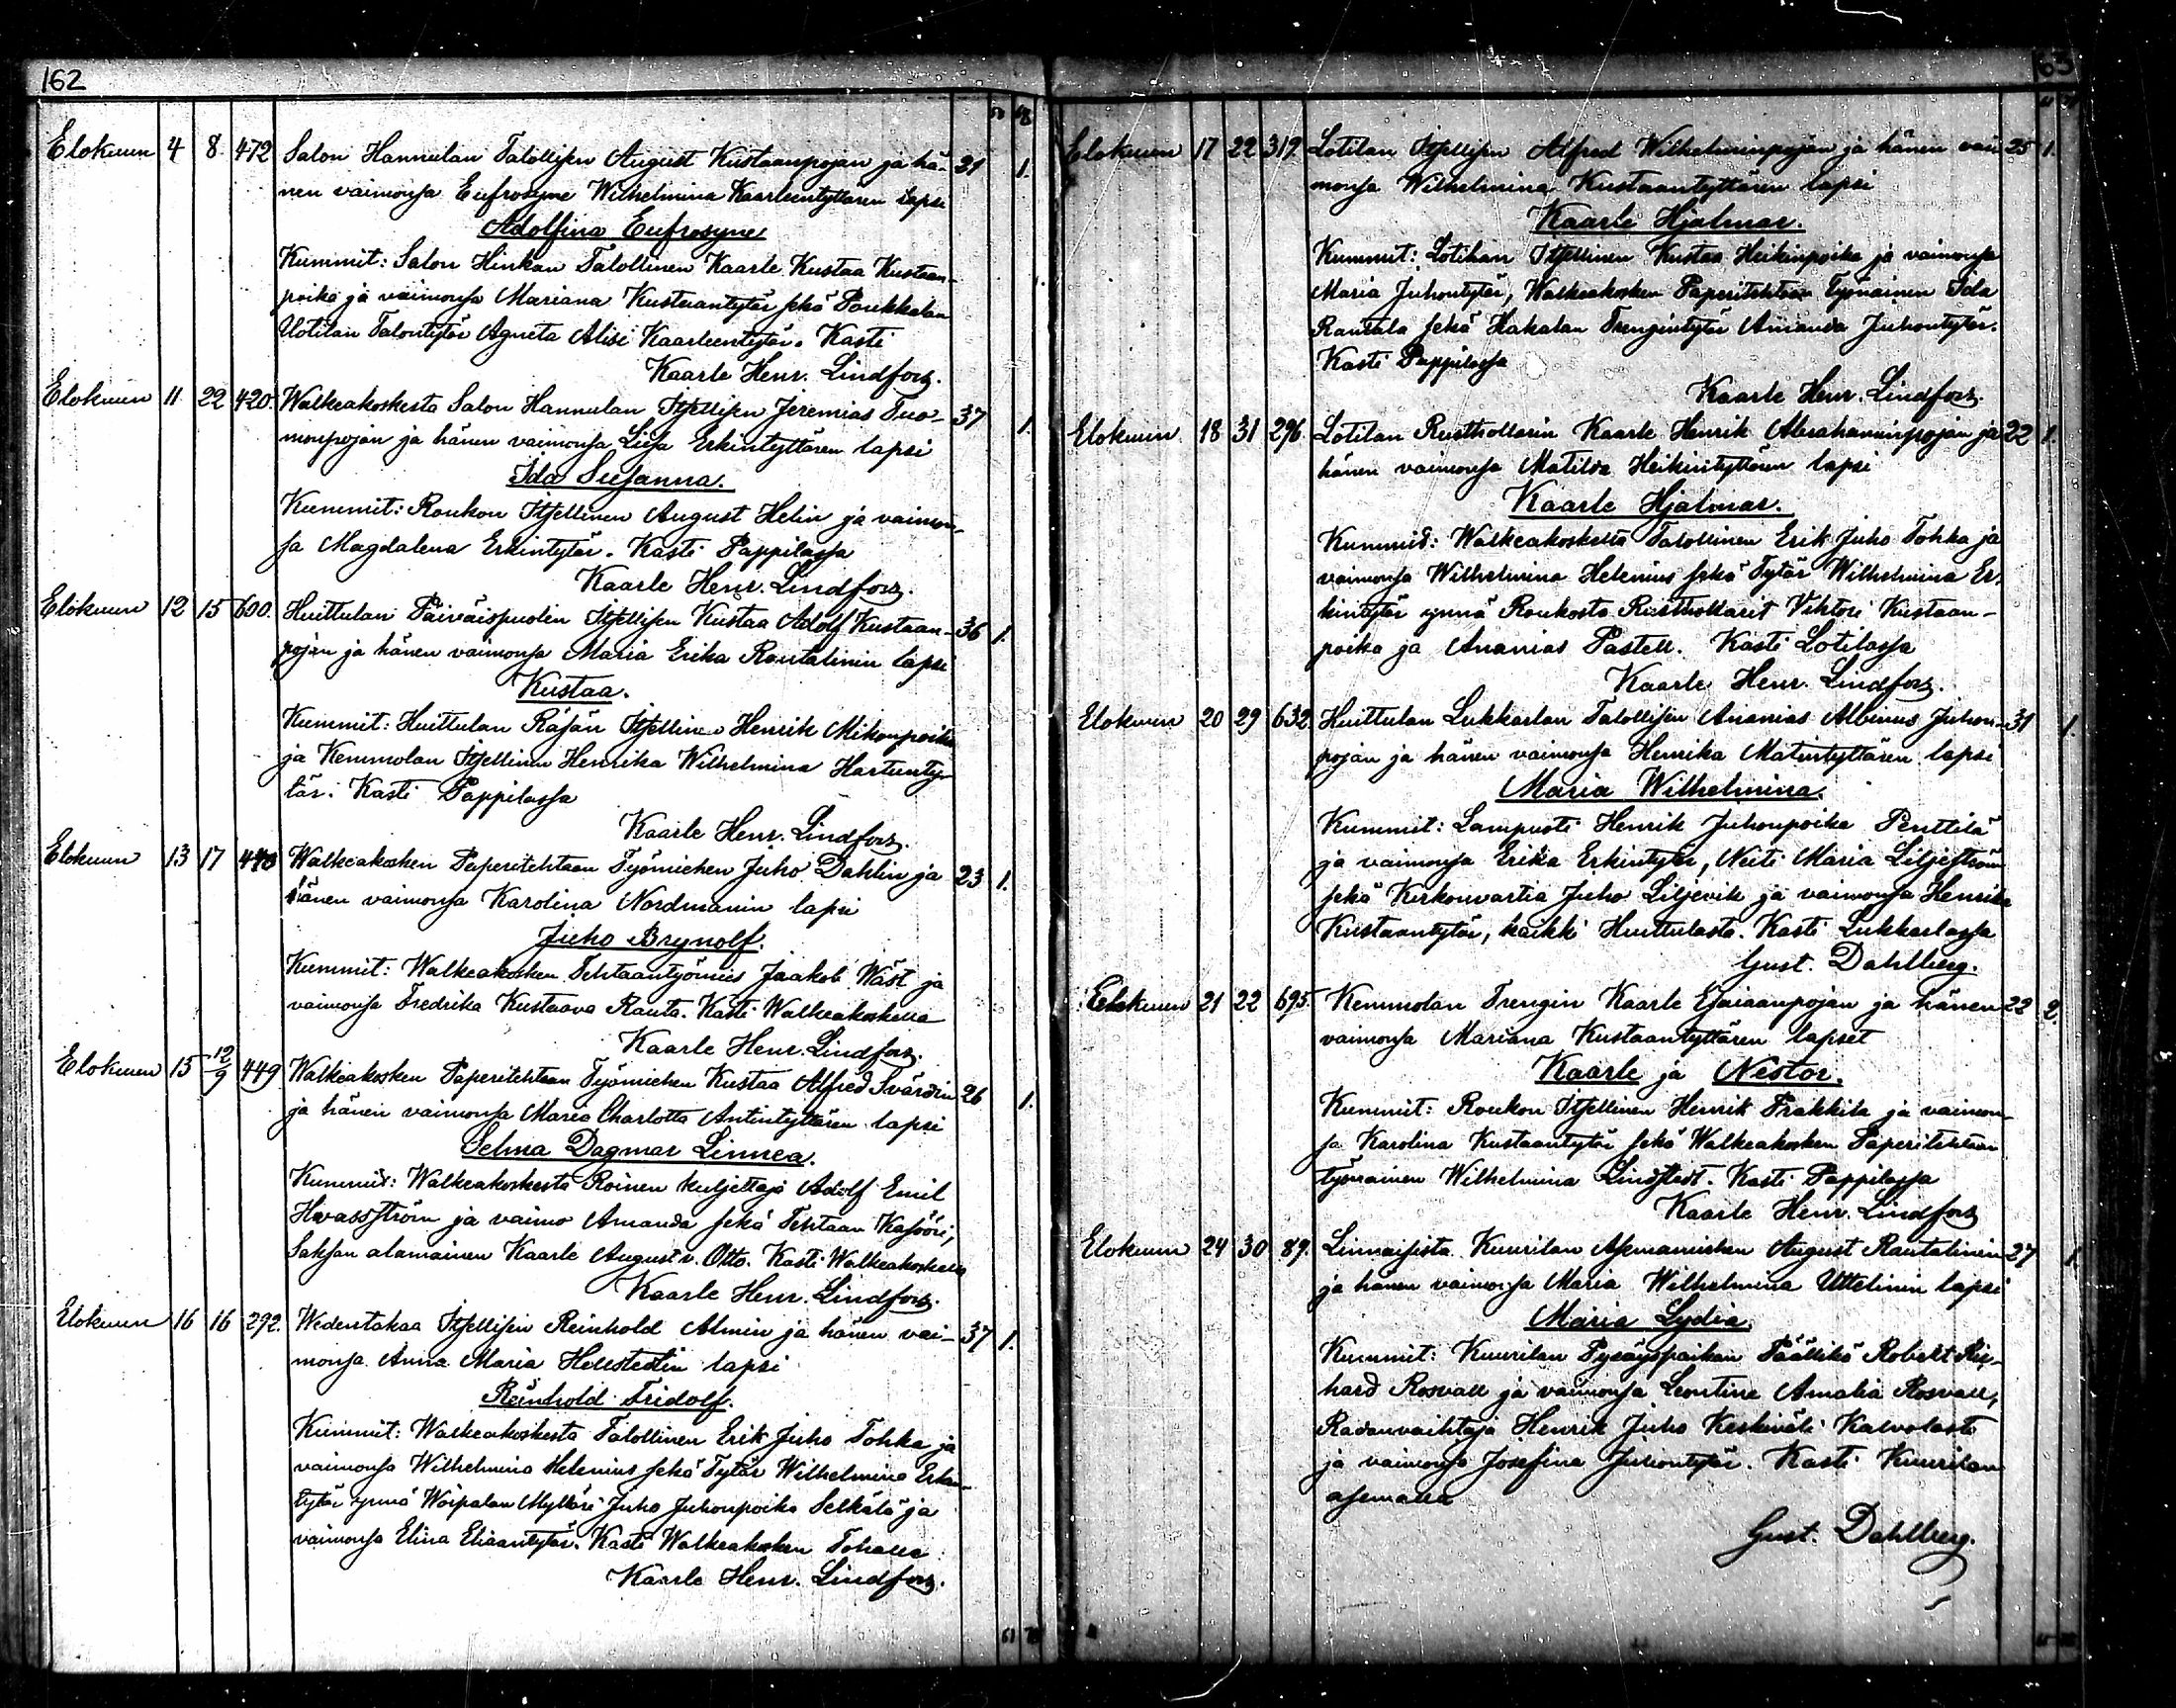 162
Elokuun 4 8 472 Salon Hannulan Talollisen August Kustaanpojan ja hä- 31 1.
nen vaimonsa Eufrosyne Wilhelmina Kaarleentyttären lapsi
Adolfina Eufrosyne
Kummit: Salon Hinkan Talollinen Kaarle Kustaa Kustaan-
poika ja vaimonsa Mariana Kustaantytär sekä
Uotilan Talontytär Agneta Alisi Kaarleentytär. Kasti
Kaarle Henr. Lindfors.
Elokuun 11 22 420. Walkeakoskesta Salon Hannulan Itsellisen Jeremias Tuo- 37 1.
monpojan ja hänen vaimonsa Liisa Erkintyttären lapsi
Ida Susanna.
Kummit: Roukon Itsellinen August Helin ja vaimon-
sa Magdalena Erkintytär. Kasti Pappilassa
Kaarle Henr. Lindfors.
Elokuun 12 15 600. Huittulan Päiväispuolin Itsellisen Kustaa Adolf Kustaan- 36 1.
pojan ja hänen vaimonsa Maria Erika Rautalinin lapsi
Kustaa.
Kummit: Huittulan Räsän Itsellinen Henrik Mikonpoika
ja Kemmolan Itsellinen Henrika Wilhelmina
tär. Kasti Pappilassa
Kaarle Henr. Lindfors.
Elokuun 13 17 440 Walkeakosken Paperitehtaan Työmiehen Juho Dahlin ja 23 1.
hänen vaimonsa Karolina Nordmanin lapsi
Juho Brynolf.
Kummit: Walkeakosken Tehtaantyömies Jaakob Wäst ja
vaimonsa Fredrika Kustaava Rauta. Kasti Walkeakoskella
Kaarle Henr. Lindfors.
Elokuun 15 12/9 449 Walkeakosken Paperitehtaan Työmiehen Kustaa Alfred Svärdin 26 1.
ja hänen vaimonsa Maria Charlotta Antintyttären lapsi
Selma Dagmar Linnea.
Kummit: Walkeakoskesta Koinen kuljettaja Adolf Emil
Hwassström ja vaimo Amanda sekä Tehtaan Kasööri,
Saksan alamainen Kaarle August v. Otto. Kasti Walkeakoskella
Kaarle Henr. Lindfors.
Elokuun 16 16 292. Wedentakaa Itsellisen Reinhold Almin ja hänen vai- 37 1.
monsa Anna Maria Hellstedtin lapsi
Reinhold Fridolf.
Kummit: Walkeakoskesta Talollinen Erik Juho Tohka ja
vaimonsa Wilhelmina Helenius sekä Tytär Wilhelmina Erkin-
tytär ynnä Woipalan Mylläri Juho Juhonpoika Selkälä ja
vaimonsa Elina Eliaantytär. Kasti Walkeakosken Tohalla
Kaarle Henr. Lindfors.
63
Elokuun 17 22 319. Lotilan Itsellisen Alfred Wilhelminpojan ja hänen vai- 25 1.
monsa Wilhelmina Kustaantyttären lapsi
Kaarle Hjalmar.
Kummit: Lotilan Itsellinen Kustaa Heikinpoika ja vaimonsa
Maria Juhontytär, Walkeakosken Paperitehtaan Työnainen Ida
Rantala sekä Hakalan Trengintytär Amanda Juhontytär.
Kasti Pappilassa
Kaarle Henr. Lindfors.
Elokuun 18 31 296. Lotilan Rusthollarin Kaarle Henrik Abrahaminpojan ja 22 1.
hänen vaimonsa Matilda Heikintyttären lapsi
Kaarle Hjalmar.
Kummit: Walkeakoskelta Talollinen Erik Juho Tohka ja
vaimonsa Wilhelmina Helenius sekä Tytär Wilhelmina Er-
kintytär ynnä Roukosta Rusthollarit Vihtori Kustaan-
poika ja Ananias Pastell. Kasti Lotilassa
Kaarle Henr. Lindfors.
Elokuun 20 29 632. Huittulan Lukkarlan Talollisen Ananias Albinus Juhon- 31 1.
pojan ja hänen vaimonsa Henrika Matintyttären lapsi
Maria Wilhelmina.
Kummit: Lampuoti Henrik Juhonpoika Penttilä
ja vaimonsa Erika Erkintytär, Neiti Maria Liljeström
sekä Kirkonvartia Juho Liljevik ja vaimonsa Henrika
Kustaantytär, kaikki Huittulasta. Kasti Lukkarlassa
Gust. Dahlberg.
Elokuun 21 22 695. Kemmolan Trengin Kaarle Esaiaanpojan ja hänen 22 2.
vaimonsa Mariana Kustaantyttären lapset
Kaarle ja Nestor.
Kummit: Roukon Itsellinen Henrik Prakkila ja vaimon-
sa Karolina Kustaantytär sekä Walkeakosken Paperitehtaan
työnainen Wilhelmina Lindstedt. Kasti Pappilassa
Kaarle Henr. Lindfors
Elokuun 24 30 89. Linnaisista Kuurilan Asemamiehen August Rautalinin 27 1.
ja hänen vaimonsa Maria Wilhelmina Uttelinin lapsi
Maria Lydia.
Kummit: Kuurilan Pysäyspaikan Päällikö Robert Rik-
hard Rosvall ja vaimonsa Leontine Amalia Rosvall,
Radanvaihtaja Henrik Juho Keskiväli Kalvolasta
ja vaimonsa Josefina Juhontytär. Kasti Kuurilan
asemalla
Gust. Dahlberg.